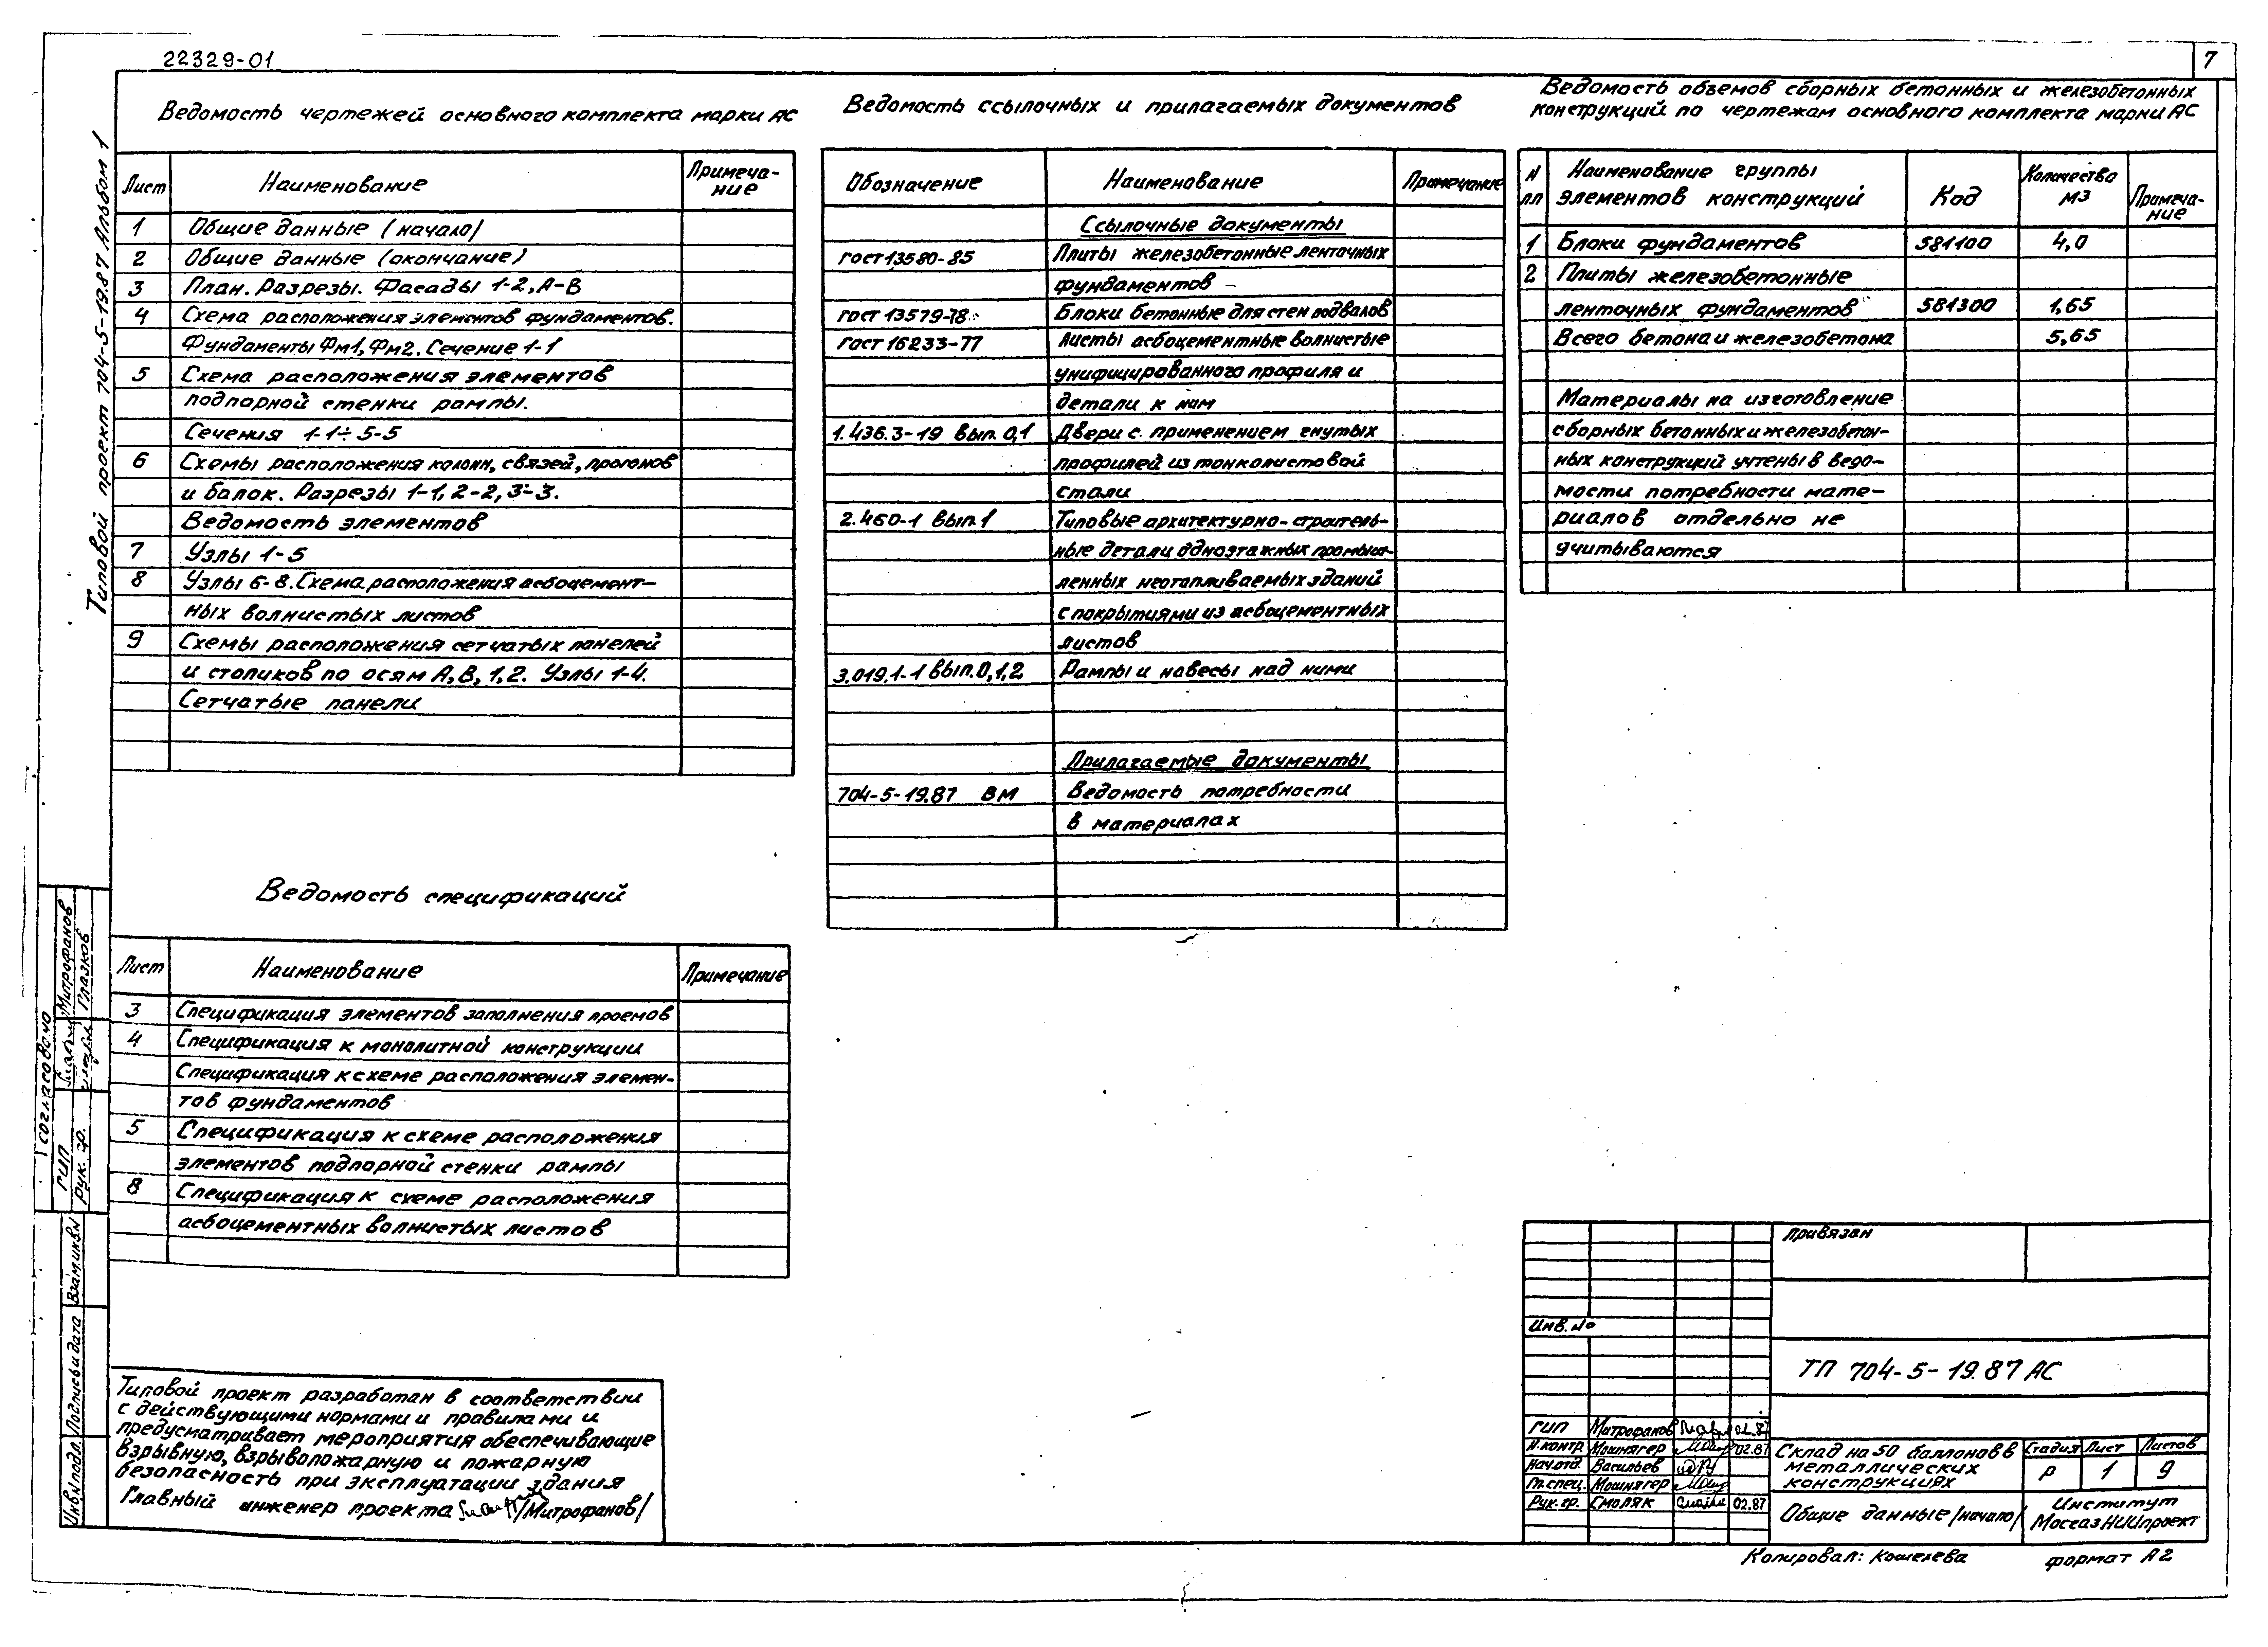 22329-01
7
Типовой проект 704-5-19.87 Альбом 1
Ведомость чертежей основного комплекта марки АС
Лист Наименование Примеча-
ние
1 Общие данные (начало)
2 Общие данные (окончание)
3 План. Разрезы. Фасады 1-2, А-В
4 Схема расположения элементов фундаментов.
Фундаменты Фм1, Фм2. Сечение 1-1
5 Схема расположения элементов
подпорной стенки рампы.
Сечения 1-1÷5-5
6 Схемы расположения колонн, связей, прогонов
и балок. Разрезы 1-1, 2-2, 3-3.
Ведомость элементов
7 Узлы 1-5
8 Узлы 6-8. Схема расположения асбоцемент-
ных волнистых листов
9 Схемы расположения сетчатых панелей
и столиков по осям А, В, 1, 2. Узлы 1-4.
Сетчатые панели
Ведомость спецификаций
Лист Наименование Примечание
3 Спецификация элементов заполнения проемов
4 Спецификация к монолитной конструкции
Спецификация к схеме расположения элемен-
тов фундаментов
5 Спецификация к схеме расположения
элементов подпорной стенки рампы
8 Спецификация к схеме расположения
асбоцементных волнистых листов
Типовой проект разработан в соответствии
с действующими нормами и правилами и
предусматривает мероприятия обеспечивающие
взрывную, взрывопожарную и пожарную
безопасность при эксплуатации здания
Главный инженер проекта /Митрофанов/
Ведомость ссылочных и прилагаемых документов
Обозначение Наименование Примечание
Ссылочные документы
ГОСТ 13580-85 Плиты железобетонные ленточных
фундаментов
ГОСТ 13579-78 Блоки бетонные для стен подвалов
ГОСТ 16233-77 Листы асбоцементные волнистые
унифицированного профиля и
детали к ним
1.436.3-19 вып. 0,1 Двери с применением гнутых
профилей из тонколистовой
стали
2.460-1 вып.1 Типовые архитектурно-строитель-
ные детали одноэтажных промыш-
ленных неотапливаемых зданий
с покрытиями из асбоцементных
листов
3.019.1-1 вып.0,1,2 Рампы и навесы над ними
Прилагаемые документы
704-5-19.87 ВМ Ведомость потребности
в материалах
Ведомость обземов сборных бетонных и железобетонных
конструкций по чертежам основного комплекта марки АС
N
пп Наименование группы
элементов конструкций Код Количество
м3 Примеча-
ние
1 Блоки фундаментов 581100 4,0
2 Плиты железобетонные
ленточных фундаментов 581300 1,65
Всего бетона и железобетона 5,65
Материалы на изготовление
сборных бетонных и железобетон-
ных конструкций учтены в ведо-
мости потребности мате-
риалов отдельно не
учитываются
Согласовано
ГИП Митрофанов
Рук. гр. Глазков
Взам.инв.N
Подпись и дата
Инв.N подл.
Привязан
Инв. No
ТП 704-5-19.87 АС
ГИП Митрофанов 02.87
Н.контр Мошнягер 02.87
Нач.отд. Васильев
Гл.спец. Мошнягер
Рук. гр. Смоляк 02.87
Склад на 50 баллонов в
металлических
конструкциях
Стадия Лист Листов
Р 1 9
Общие данные /начало/
Институт
МосгазНИИпроект
Копировал: Кошелева
формат А2